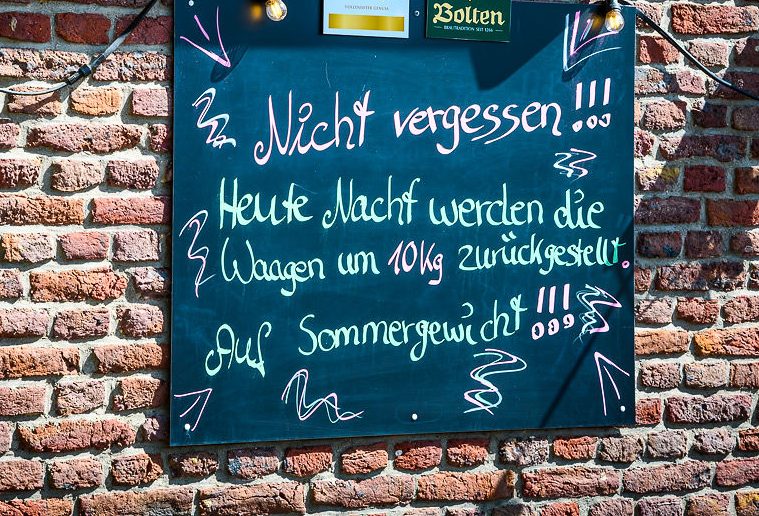 Bolten
BRAUTRADITION SEIT 1266
Nicht vergessen!!!
Heute Nacht werden die
Waagen um 10Kg zurückgestellt.
Auf Sommergewicht!!!